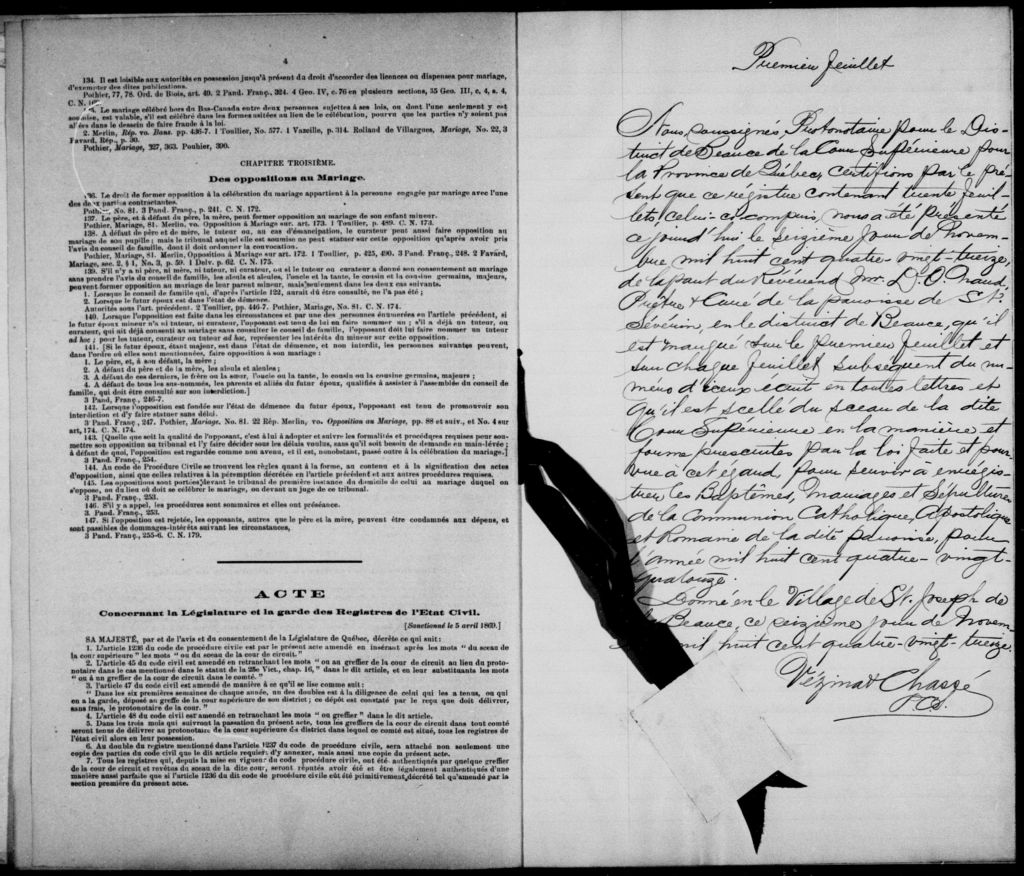 4
134. Il est loisible aux autorités en possession jusqu'à présent du droit d'accorder des licences ou dispenses pour mariage,
d'exempter des dites publications.
Pothier, 77, 78. Ord. de Blois, art. 40. 2 Pand. Franç., 324. 4 Geo. IV, c. 76 en plusieurs sections, 35 Geo. III, c, 4, s. 4,
C. N.
Le mariage célébré hors du Bas-Canada entre deux personnes sujettes à ses lois, ou dont l'une seulement y est
soumise, est valable, s'il est célébré dans les formes usitées au lieu de la célébration, pourvu que les parties n'y soient pas
allées dans le dessein de faire fraude à la loi.
2. Merlin, Rép. vo. Bans. pp. 436-7. 1 Toullier, No. 577. 1 Vazeille, p. 314. Rolland de Villargues, Mariage, No. 22, 3
Favard, Rép., p. 30.
Pothier, Mariage, 327, 363. Pouhier, 390.
CHAPITRE TROISIÈME.
Des oppositions au Mariage.
136. Le droit de former opposition à la célébration du mariage appartient à la personne engagée par mariage avec l'une
des deux parties contractantes.
Poth., No. 81. 3 Pand. Franç., p. 241. C. N. 172.
137. Le père, et à défaut du père, la mère, peut former opposition au mariage de son enfant mineur.
Pothier, Mariage, 81. Merlin, vo. Opposition à Mariage sur. art. 173. 1 Toullier, p. 489. C. N. 173.
138. A défaut de père et de mère, le tuteur ou, au cas d'émancipation, le curateur peut aussi faire opposition au
mariage de son pupille; mais le tribunal auquel elle est soumise ne peut statuer sur cette opposition qu'après avoir pris
l'avis du conseil de famille, dont il doit ordonner la convocation.
Pothier, Mariage, 81. Merlin, Opposition à Mariage sur art. 172. 1 Toullier, p. 425, 490. 3 Pand. Franç., 248. 2 Favard,
Mariage, sec. 2, § 1, No. 3, p. 59. 1 Delv. p. 62. C. N. 175.
139. S'il n'y a ni père, ni mère, ni tuteur, ni curateur, ou si le tuteur ou curateur a donné son consentement au mariage
sans prendre l'avis du conseil de famille, les aïeuls et aïeules, l'oncle et la tante, le cousin et la cousine germains, majeurs,
peuvent former opposition au mariage de leur parent mineur, mais seulement dans les deux cas suivants.
1. Lorsque le conseil de famille qui, d'après l'article 122, aurait dû être consulté, ne l'a pas été;
2. Lorsque le futur époux est dans l'état de démence.
Autorités sous l'art. précédent. 2 Toullier, pp. 446-7. Pothier, Mariage, No. 81. C. N. 174.
140. Lorsque l'opposition est faite dans les circonstances et par une des personnes énumérées en l'article précédent, si
le futur époux mineur n'a ni tuteur, ni curateur, l'opposant est tenu de lui en faire nommer un; s'il a déjà un tuteur, ou
curateur, qui ait déjà consenti au mariage sans consulter le conseil de famille, l'opposant doit lui faire nommer un tuteur
ad hoc; pour les tuteur, curateur ou tuteur ad hoc, représenter les intérêts du mineur sur cette opposition.
141. [Si le futur époux, étant majeur, est dans l'état de démence, et non interdit, les personnes suivantes peuvent,
dans l'ordre où elles sont mentionnées, faire opposition à son mariage:
1. Le père, et, à son défaut, la mère;
2. A défaut du père et de la mère, les aïeuls et aïeules;
3. A défaut de ces derniers, le frère ou la sœur, l'oncle ou la tante, le cousin ou la cousine germains, majeurs;
4. A défaut de tous les sus-nommés, les parents et alliés du futur époux, qualifiés à assister à l'assemblée du conseil de
famille, qui doit être consulté sur son interdiction.]
3 Pand. Franç., 246-7.
142. Lorsque l'opposition est fondée sur l'état de démence du futur époux, l'opposant est tenu de promouvoir son
interdiction et d'y faire statuer sans délai.
3 Pand. Franç., 247. Pothier, Mariage. No. 81. 22 Rép. Merlin, vo. Opposition au Mariage, pp. 88 et suiv., et No. 4 sur
art, 174. C. N. 174.
143. [Quelle que soit la qualité de l'opposant, c'est à lui à adopter et suivre les formalités et procédures requises pour sou-
mettre son opposition au tribunal et l'y faire décider sous les délais voulus, sans qu'il soit besoin de demande en main-levée;
à défaut de quoi, l'opposition est regardée comme non avenu, et il est, nonobstant, passé outre à la célébration du mariage.]
3 Pand. Franç., 254.
144. Au code de Procédure Civile se trouvent les règles quant à la forme, au contenu et à la signification des actes
d'opposition, ainsi que celles relatives à la péremption décrétée en l'article précédent et aux autres procédures requises.
145. Les oppositions sont portées devant le tribunal de première instance du domicile de celui au mariage duquel on
s'oppose, ou du lieu où doit se célébrer le mariage, ou devant un juge de ce tribunal.
3 Pand. Franç., 253.
146. S'il y a appel, les procédures sont sommaires et elles ont préséance.
3. Pand. Franç., 253.
147. Si l'opposition est rejetée, les opposants, autres que le père et la mère, peuvent être condamnés aux dépens, et
sont passibles de dommages-intérêts suivant les circonstances,
3 Pand. Franç., 255-6. C. N. 179.
ACTE
Concernant la Législature et la garde des Registres de l'Etat Civil.
[Sanctionné le 5 avril 1869.]
SA MAJESTÉ, par et de l'avis et du consentement de la Législature de Québec, décrète ce qui suit:
1. L'article 1236 du code de procédure civile est par le présent acte amendé en insérant après les mots "du sceau de
la cour supérieure" les mots "ou du sceau de la cour de circuit."
2. L'article 45 du code civil est amendé en retranchant les mots "ou au greffier de la cour de circuit au lieu du proto-
notaire dans le cas mentionné dans le statut de la 25e Vict., chap. 16," dans le dit article, et en leur substituants les mots
"ou à un greffier de la cour de circuit dans le comté."
3. l'article 47 du code civil est amendé de manière à ce qu'il se lise comme suit:
"Dans les six premières semaines de chaque année, un des doubles est à la diligence de celui qui les a tenus, ou qui
en a la garde, déposé au greffe de la cour supérieure de son district; ce dépôt est constaté par le reçu que doit délivrer,
sans frais, le protonotaire de la cour."
4. L'article 48 du code civil est amendé en retranchant les mots "ou greffier" dans le dit article.
5. Dans les trois mois qui suivront la passation du présent acte, tous les greffiers de la cour de circuit dans tout comté
seront tenus de délivrer au protonotaire de la cour supérieure du district dans lequel ce comté est situé, tous les registres de
l'état civil alors en leur possession.
6. Au double du registre mentionné dans l'article 1237 du code de procédure civile, sera attaché non seulement une
copie des parties du code civil que le dit article requiert d'y annexer, mais aussi une copie du présent acte.
7. Tous les registres qui, depuis la mise en vigueur du code procédure civile, ont été authentiqués par quelque greffier
de la cour de circuit et revêtus du sceau de la dite cour, seront réputés avoir été et être légalement authentiqués d'une
manière aussi parfaite que si l'article 1236 du dit code de procédure civile eût été primitivement décrété tel qu'amendé par la
section première du présent acte.
Premier feuillet
Nous, soussignés, Protonotaire pour le Dis-
trict de Beauce de la Cour Supérieure pour
la Province de Québec, certifions par le pré-
sent que ce régistre contenant trente feuil-
lets, celui-ci compris, nous a été présenté
ce jourd'hui le seizième jour de Novem-
bre mil huit cent quatre-vingt-treize,
de la part du Révérend Mr. D. O. Naud,
Prêtre & Curé de la paroisse de St.
Séverin, en le district de Beauce, qu'il
est marqué sur le premier feuillet et
sur chaque feuillet subséquent du nu-
méro d'iceux écrit en toutes lettres et
qu'il est scellé du sceau de la dite
Cour Supérieure en la manière et
forme prescrites par la loi faite et pour-
vue à cet égard, pour servir à enrégis-
trer les Baptêmes, Mariages et Sépultures
de la Communion Catholique, Apostolique
et Romaine de la dite paroisse, pour
l'année mil huit cent quatre-vingt-
quatorze.
Donné en le Village de St. Joseph de
Beauce, ce seizième jour de Novem-
mil huit cent quatre-vingt-treize.
Vézina & Chassé
P.C.S.